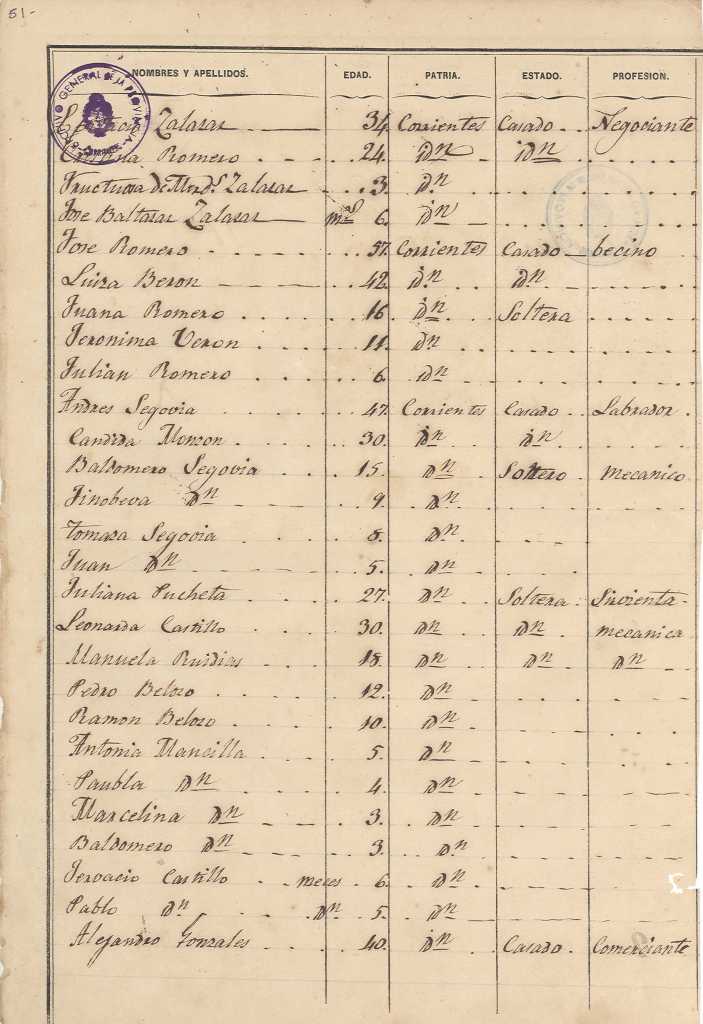 51-
NOMBRES Y APELLIDOS. EDAD. PATRIA. ESTADO. PROFESION.
Zalasar 34. Corrientes Casado Negociante
Romero 24. iDn iDn
Fructuosa de Merds. Zalasar 3. iDn
Jose Baltasar Zalasar ms 6. iDn
Jose Romero 57. Corrientes Casado becino
Luisa Beron 42. iDn iDn
Juana Romero 16. iDn Soltera
Jeronima Veron 11. Dn
Julian Romero 6. Dn
Andres Segovia 47. Corrientes Casado Labrador
Candida Monzon 30. iDn iDn
Baldomero Segovia 15. Dn Soltero mecanico
Jinobeva Dn 9. Dn
Tomasa Segovia 8. Dn
Juan Dn 5. Dn
Juliana Pucheta 27. Dn Soltera Sirvienta
Leonarda Castillo 30. Dn Dn mecanica
Manuela Ruidias 18. Dn Dn Dn
Pedro Beloso 12. Dn
Ramon Beloso 10. Dn
Antonia Mancilla 5. Dn
Paubla Dn 4. Dn
Marcelina Dn 3. Dn
Baldomero Dn 3. Dn
Jervacio Castillo meces 6. Dn
Pablo Dn Dn 5. Dn
Alejandro Gonzales 40. iDn Casado Comerciante